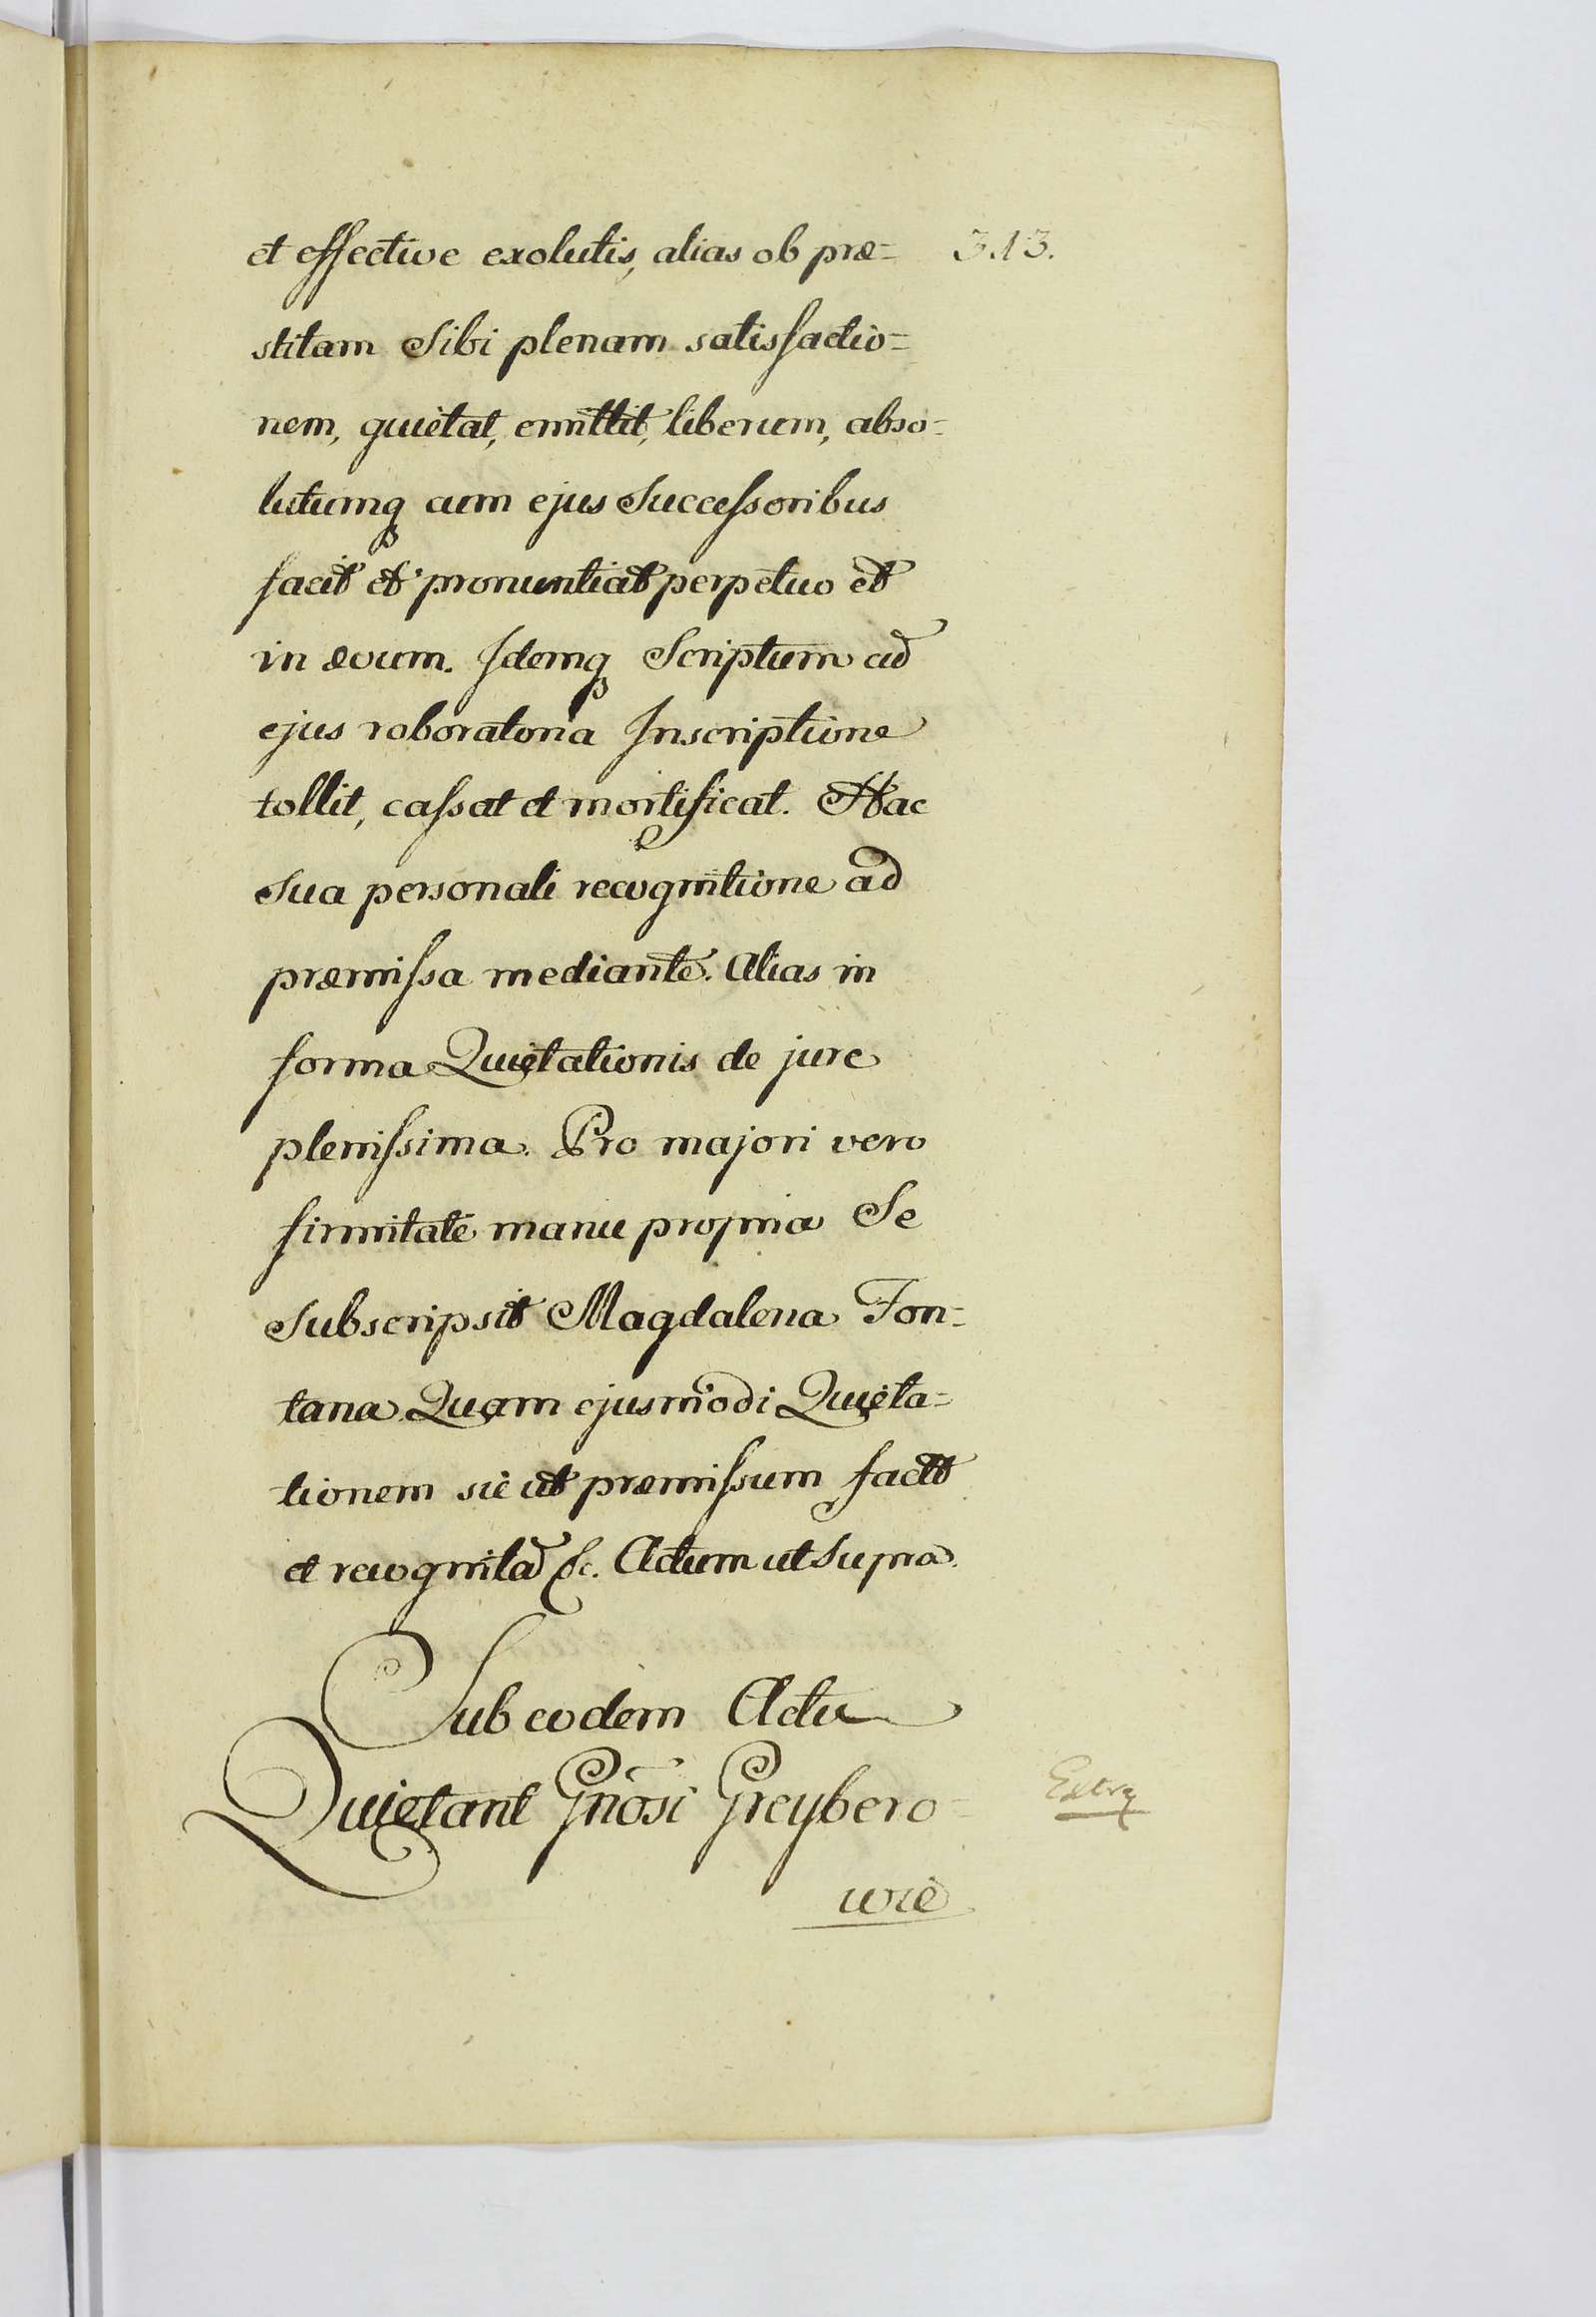 et effective exolutis, alias ob præ= 313.
stitam Sibi plenam satisfactio=
nem, quietat, emittit, liberum, abso=
lutumq cum ejus Successoribus
facit et pronuntiat perpetuo et
in ævum. Idemq Scriptum cũ
ejus roboratoria Inscriptione
tollit, cassat et mortificat. Hac
Sua personali recognitione ad
præmissa mediante. Alias in
forma Quietationis de jure
plenissima. Pro majori vero
firmitate manu propria Se
Subscripsit Magdalena Fon=
tana Quam ejusmodi Quieta=
tionem sic ut præmissum
et recognita &c. Actum ut Supra.
Sub eodem Actu
Quietant Gñosi Greybero= Extrq
wie